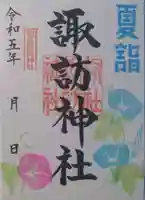 夏詣
諏訪神社
令和五年 月 日